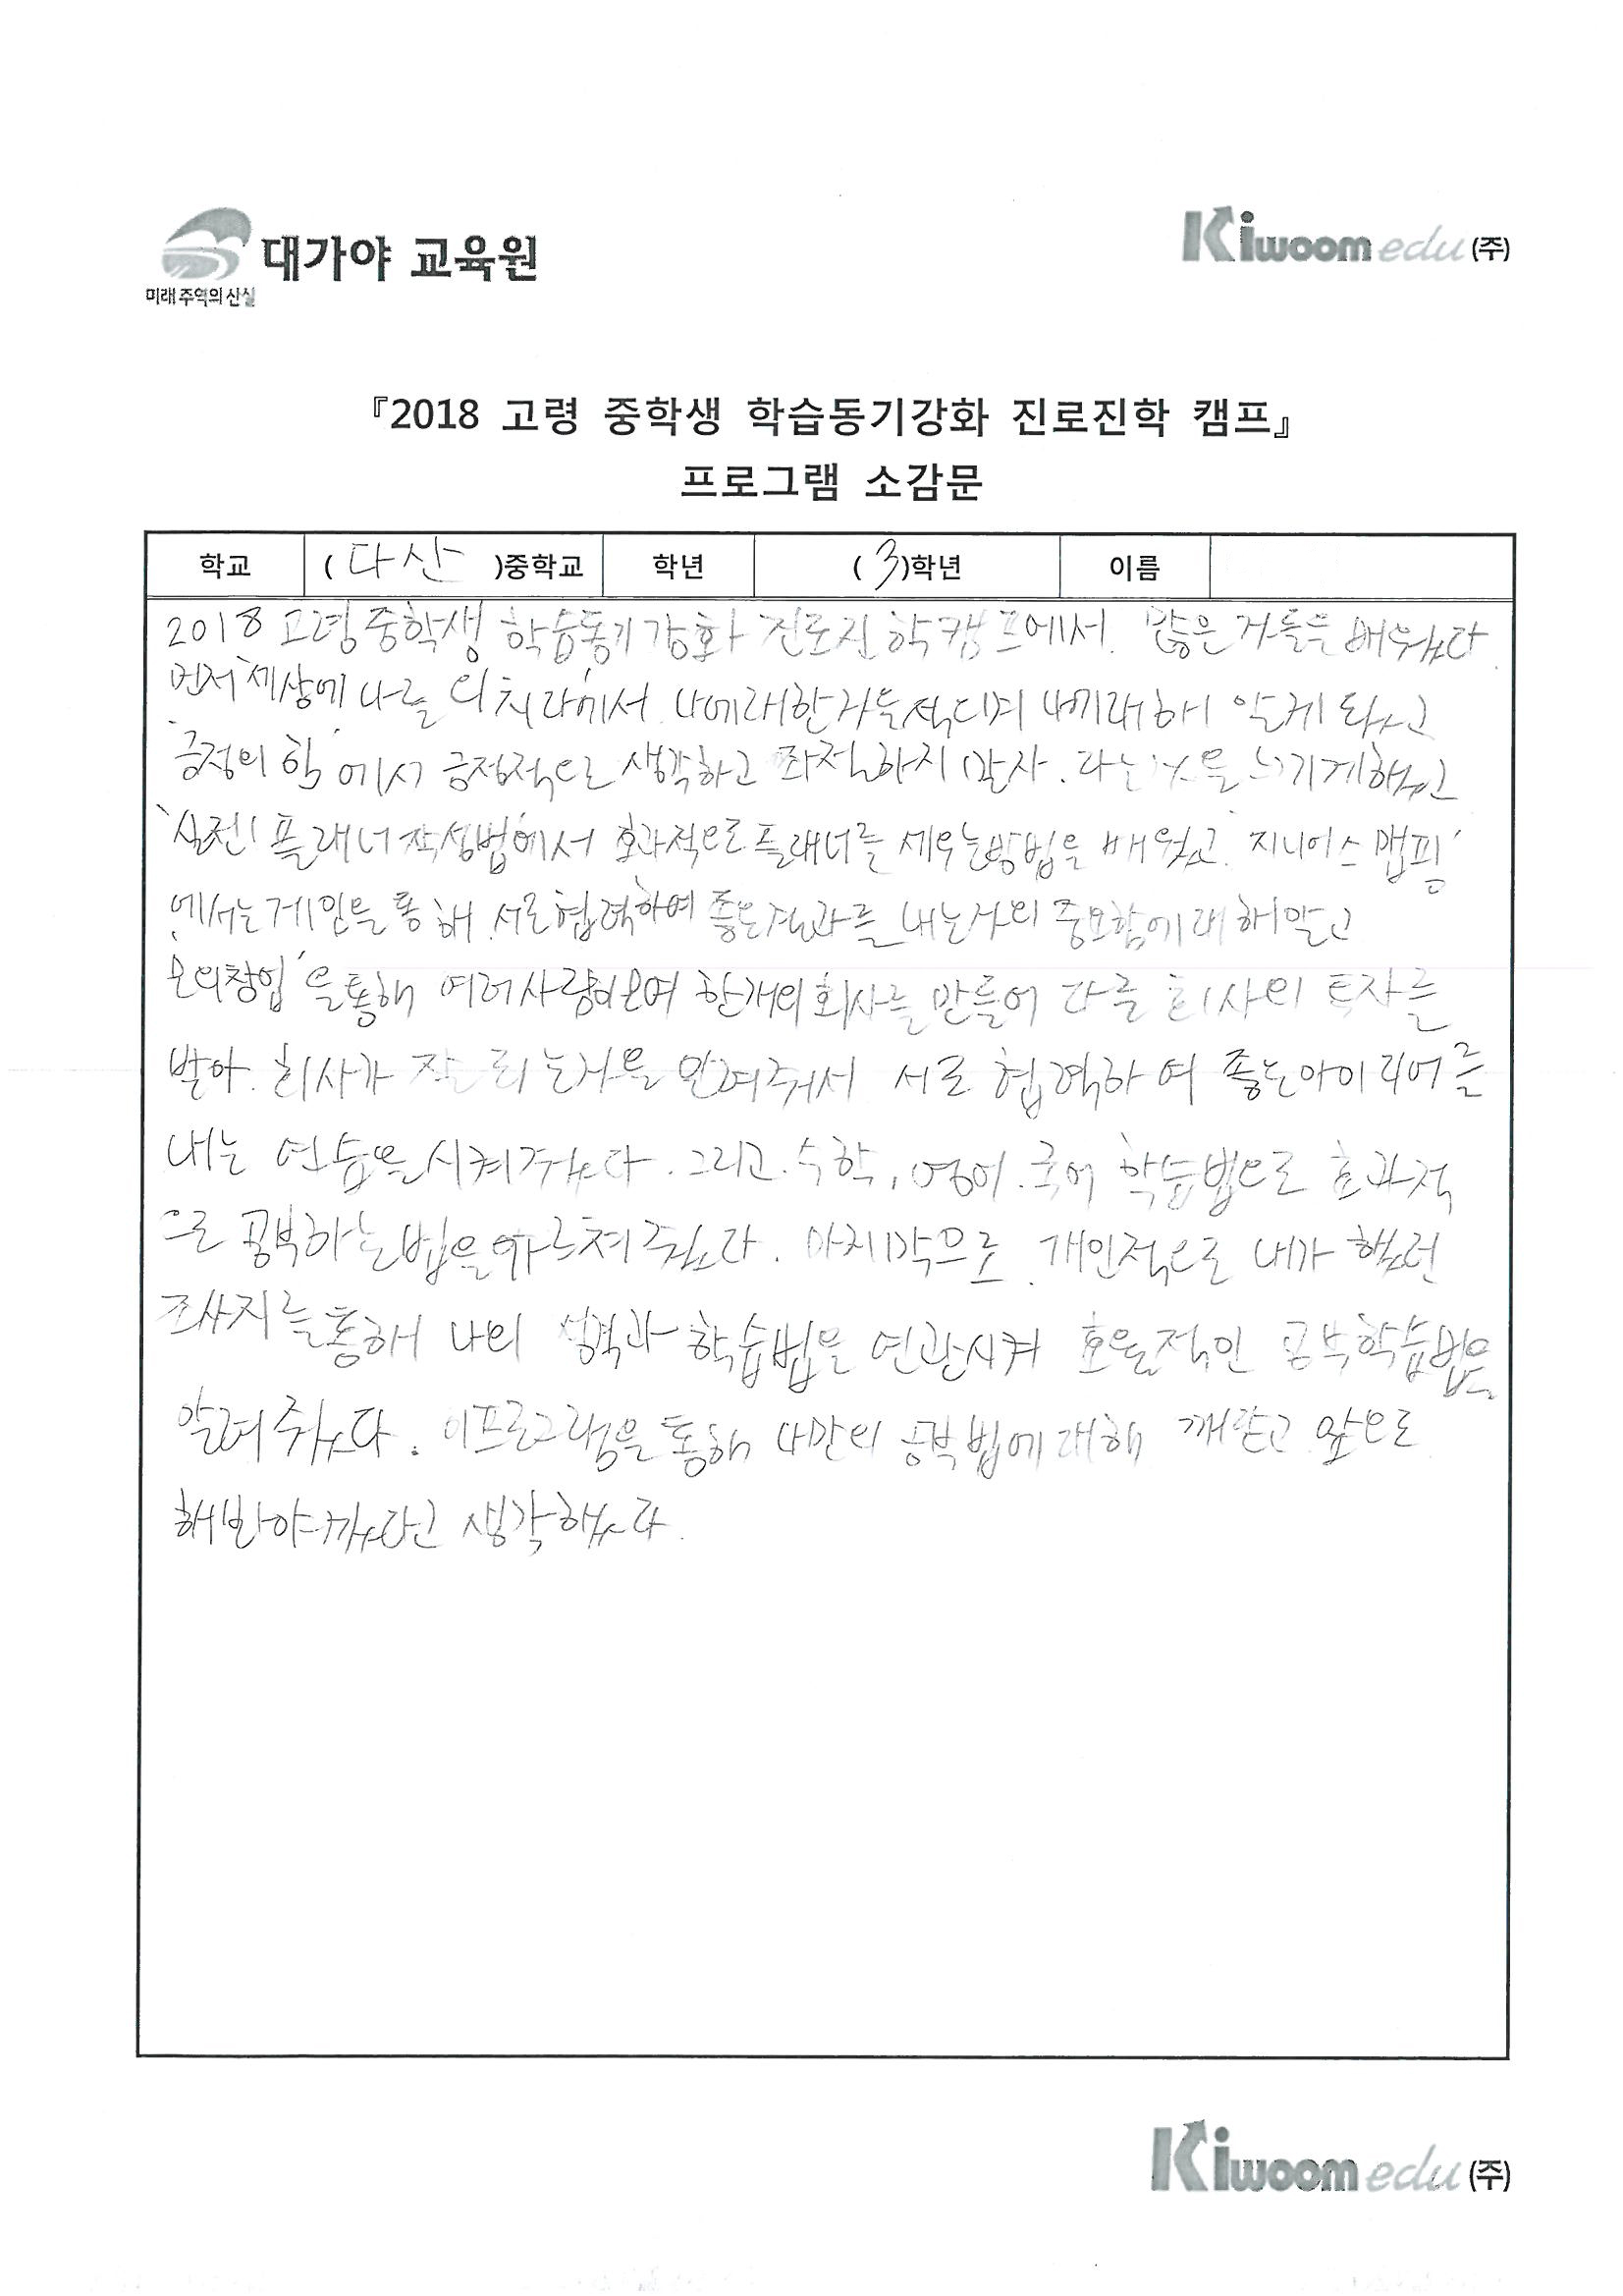 대가야 교육원
미래 주역의 산실
Kiwoom edu (주)
『2018 고령 중학생 학습동기강화 진로진학 캠프』
프로그램 소감문
학교 ( 다산 )중학교 학년 ( 3 )학년 이름
2018 고령 중학생 학습동기강화 진로진학캠프에서 많은 거들을 배웠다.
먼저 '세상에 나를 외쳐라'에서 나에대한거를적으며 내에대해 알게 되었고
'긍정의 힘'에서 긍정적으로 생각하고 좌절하지 말자. 라는것을 느끼게했고
'실전! 플래너 작성법'에서 효과적으로 플래너를 세우는방법을 배웠고 '지니어스 맵핑'
에서는게임을 통해 서로협력하여 좋은결과를 내는거의 중요함에대해알고
'모의창업'을통해 여러사람이모여 한개의회사를 만들어 다른 회사의 투자를
받아 회사가 잘 되는거를 알려줘서 서로 협력하여 좋은아이디어를
내는 연습을시켜줬다. 그리고 수학, 영어, 국어 학습법으로 효과적
으로 공부하는법을 가르쳐 줬다. 마지막으로 개인적으로 내가 했던
조사지를통해 나의 성격과 학습법을 연관시켜 효율적인 공부학습법을
알려줬다. 이프로그램을 통해 나만의 공부법에대해 깨닫고 앞으로
해봐야겠다고 생각했다.
Kiwoom edu (주)